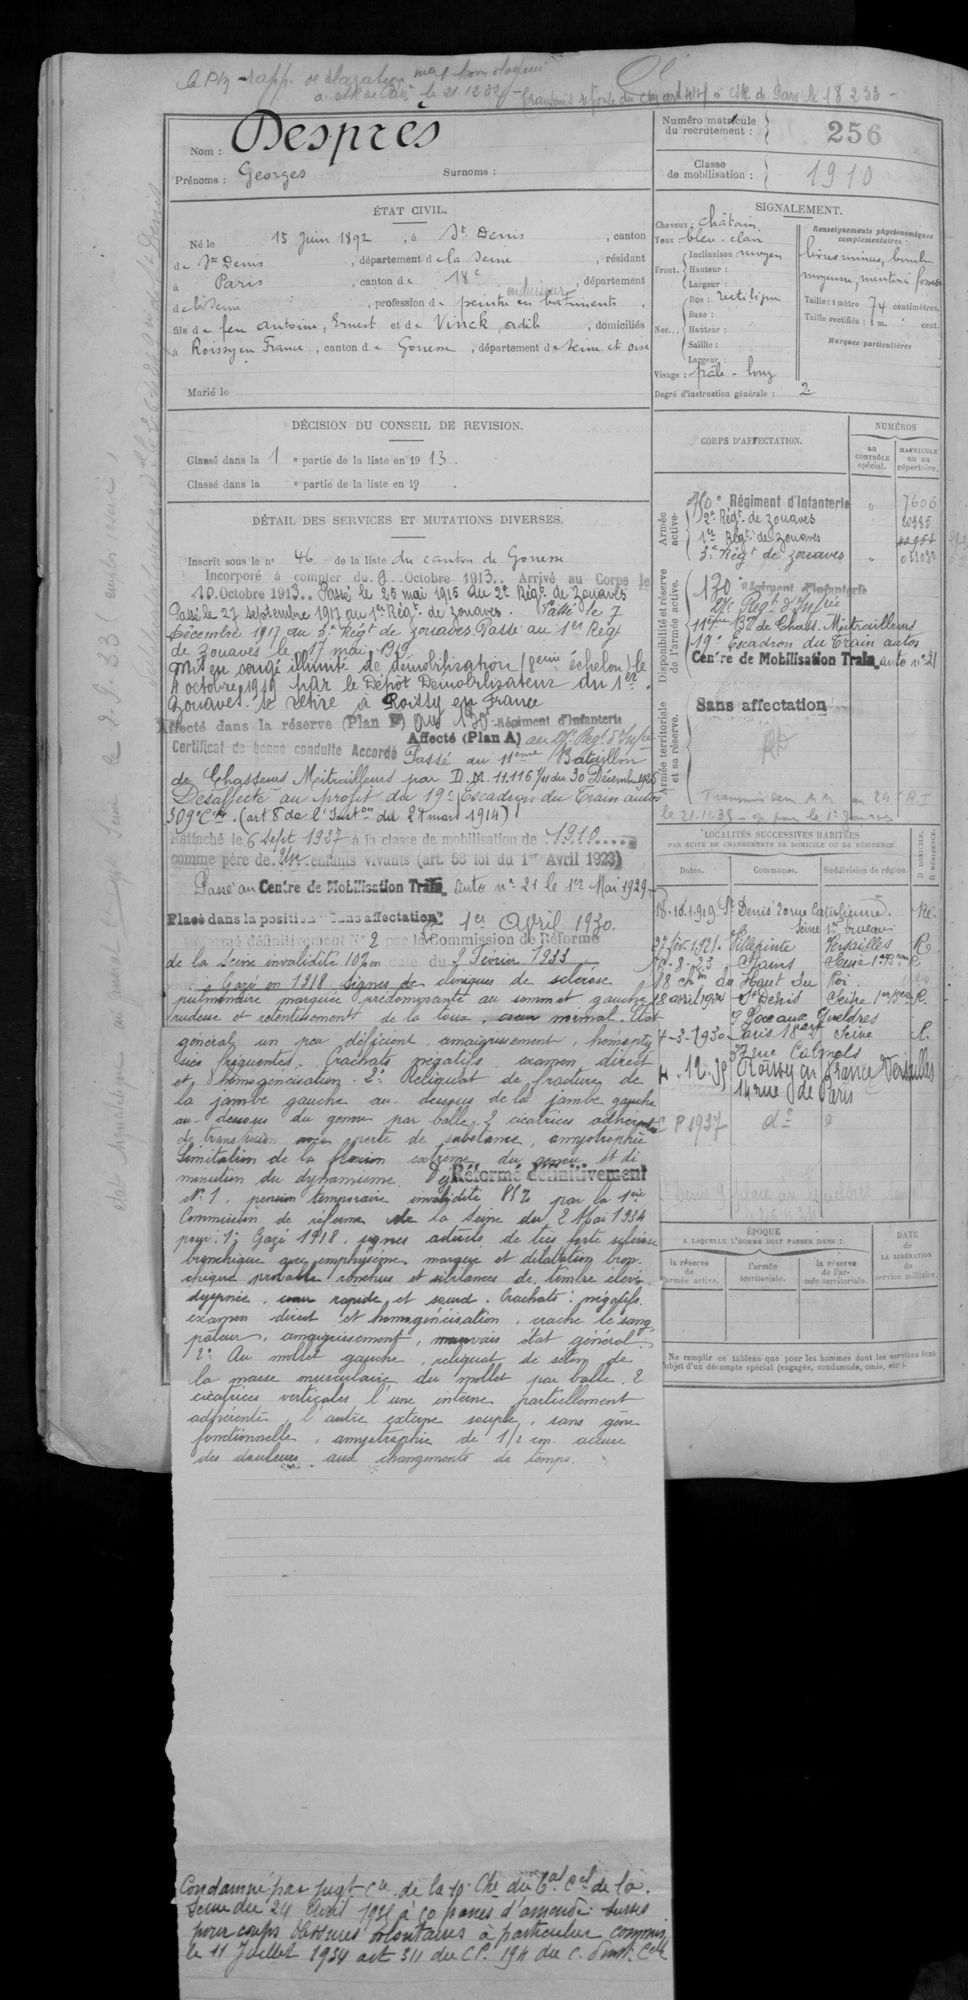 Nom : Desprès
Prénoms : Georges Surnoms :
Numéro matricule du recrutement : 256
Classe de mobilisation : 1910
ÉTAT CIVIL.
Né le 15 Juin 1892, à St Denis, canton
de St Denis, département de la Seine, résidant
à Paris, canton de 18e, département
de la Seine, profession de peintre en batiments,
fils de feu Antoine, Ernest et de Vinck, , domiciliés
à Roissy en France, canton de Gonesse, département de Seine et Oise
Marié le
SIGNALEMENT.
Cheveux : châtain
Yeux : bleu-clair
Front. Inclinaison : moyen
Hauteur :
Largeur :
Nez... Dos : rectiligne
Base :
Hauteur :
Saillie :
Largeur :
Visage : pâle - long
Renseignements physionomiques complémentaires :
moyenne, menton à fossette
Taille : 1 mètre 74 centimètres.
Taille rectifiée : 1 m. cent.
Marques particulières
Degré d'instruction générale : 2
DÉCISION DU CONSEIL DE REVISION.
Classé dans la 1e partie de la liste en 1913.
Classé dans la e partie de la liste en 19 .
DÉTAIL DES SERVICES ET MUTATIONS DIVERSES.
Inscrit sous le n° 46 de la liste du canton de Gonesse
Incorporé à compter du 9 Octobre 1913.. Arrivé au Corps le
10 Octobre 1913.. Passé le 25 mai 1915 au 2e Régt de zouaves
Passé le 27 septembre 1917 au 1er Régt de zouaves. Passé le 7
Décembre 1917 au 3e Régt de zouaves. Passé au 1er Régt
de zouaves le 17 mai 1919
Mis en congé illimité de démobilisation (8eme échelon) le
4 octobre 1919 par le Dépôt Démobilisateur du 1er
zouaves. Se retire à Roissy en France
Affecté dans la réserve (Plan ) au 130e Régiment d'Infanterie
Affecté (Plan A) au 27e Régt d'Infie
Certificat de bonne conduite Accordé Passé au 11eme Bataillon
de Chasseurs Mitrailleurs par D.M. 11.116 1/11 du 30 Décembre 1925
Désaffecté au profit du 19e Escadron du Train autos
309e Cie. (art 8 de l'Inston du 27 mars 1914)
Rattaché le 6 sept 1927 à la classe de mobilisation de 1910.....
comme père de Un enfants vivants (art. 58 loi du 1er Avril 1923)
Passé au Centre de Mobilisation Train auto n° 21 le 1er Mai 1929
Placé dans la position "Sans affectation" 1er Avril 1930
Réformé définitivement N° 2 par la Commission de Réforme
de la Seine invalidité 10% en date du 2 Février 1933
Gazé en 1918 signes de cliniques de sclérose
pulmonaire marquée prédominante au sommet gauche
rudesse et retentissement de la toux, cœur normal. Etat
général un peu déficient, amaigrissement, hémopty
sies fréquentes. Crachats négatifs examen direct
et homogénéisation. 2° Reliquat de fracture de
la jambe gauche au-dessous de la jambe gauche
au-dessous du genou par balle, 2 cicatrices adhérentes
de transfixion avec perte de substance, amyotrophie
Limitation de la flexion extrême du genou et di
minution du dynamisme. Réformé définitivement
N° 1, pension temporaire invalidité 85% par la 1ère
Commission de réforme de la Seine du 2 Mai 1934
pour : 1° Gazé 1918, signes actuels de très forte sclérose
bronchique avec emphysème marqué et dilatation bron
chique probable ronchus et sibilances de timbre élevé
dyspnée, cœur rapide et sourd. Crachats : négatifs
examen direct et homogénéisation, crache le sang,
pâleur, amaigrissement, mauvais état général.
2° Au mollet gauche, reliquat de séton de
la masse musculaire du mollet par balle. 2
cicatrices verticales l'une interne partiellement
adhérente, l'autre externe souple, sans gêne
fonctionnelle, amyotrophie de 1/2 cm. accuse
des douleurs aux changements de temps.
CORPS D'AFFECTATION.
NUMÉROS
au CONTRÔLE spécial.
MATRICULE ou au répertoire.
Armée active.
Régiment d'Infanterie " 7606
2e Régt de zouaves
1er Régt de zouaves
3e Régt de zouaves "
Disponibilité et réserve de l'armée active.
130 Régiment d'Infanterie
27e Régt d'Infie
11eme Bon de Chass. Mitrailleurs
19e Escadron du Train autos
Centre de Mobilisation Train auto n° 21
Armée territoriale et sa réserve.
Sans affectation
LOCALITÉS SUCCESSIVES HABITÉES
PAR SUITE DE CHANGEMENTS DE DOMICILE OU DE RÉSIDENCE
Dates. Communes. Subdivision de région. D. DOMICILE. R. RÉSIDENCE.
18.10.1919 St Denis 20 rue Catulienne. Re.
Seine 1er bureau
27 fév. 1921. Villepinte Versailles R.
8.23 Stains Seine
18 chin du Haut du Roi
18 avril 1924 St Denis Seine R.
9 Place aux Gueldres
4-3-1930 Paris 18e art Seine R.
37 rue
4.12.35 Roissy en France Versailles
14 rue de Paris
1937 do
ÉPOQUE
A LAQUELLE L'HOMME DOIT PASSER DANS :
la réserve de l'armée active.
l'armée territoriale.
la réserve de l'armée territoriale.
DATE de LA LIBÉRATION du service militaire.
Ne remplir ce tableau que pour les hommes dont les services font l'objet d'un décompte spécial (engagés, condamnés, omis, etc.).
Condamné par jugt Cre de la Che du Bal Cel de la
Seine du 24 Avril 1935 à 50 francs d'amende sursis
pour coups blessures volontaires à particulier commis
le 11 Juillet 1934 art 311 du CP. 194 du C. d'inst. Cele